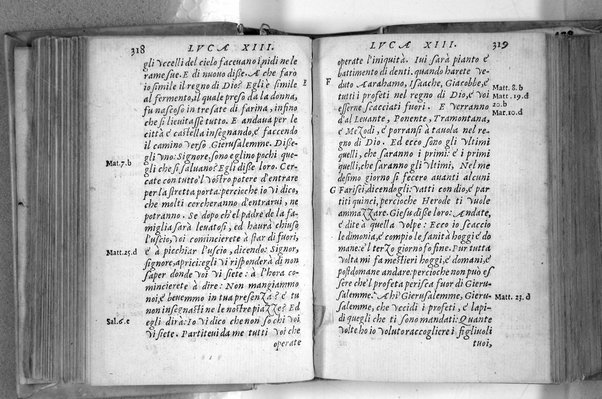 318
LVCÆ XIII.
gli vccelli del cielo faceuano i nidi ne le
rame sue. E di nuouo disse. A che farò
E
io simile il regno di Dio? Egli è simile
al fermento, il quale preso da la donna,
fu nascoso in tre sate di farina, insino
che si lieuitasse tutto. E andaua per le
città e castella insegnando, e facendo
il camino verso Gierusalemme. Disse-
Mat.7.b
gli vno: Signore, sono eglino pochi que-
gli che si saluano? Egli disse loro. Cer-
cate con tutto 'l vostro potere d'entrare
per la stretta porta: percioche io vi dico,
che molti cercheranno d'entrarui, ne
potranno. Se dopò ch'el padre de la fa-
miglia sarà leuatosi, ed haurà chiuso
l'uscio, voi comincierete à star di fuori,
Matt.25.d
e à picchiar l'uscio, dicendo: Signor,
signore, apriteci: egli vi risponderà di non
saper donde voi vi siete: à l'hora co-
mincierete à dire: Non mangiammo
noi, e beuemmo in tua presenza? e tu
non insegnasti ne le nostre piazze? Ed
Sal.6.e
egli dirà: Io vi dico che non so chi voi
vi siete. Partiteui da me tutti voi che
operate
LVCÆ XIII.
319
operate l'iniquità. Iui sarà pianto e
battimento di denti. quando harete ve-
F
duto Aarahamo, Isaache, Giacobbe, e
Matt. 8.b
tutti i profeti nel regno di Dio, e voi
Matt. 19.d
esserne scacciati fuori. E verranno
20.b
d'al Leuante, Ponente, Tramontana,
Mat.10.d
e Mezodi, e porransi à tauola nel re-
gno di Dio. Ed ecco sono gli vltimi
quelli, che saranno i primi: e i primi
quelli, che saranno gli vltimi, Nel me-
desimo giorno si fecero auanti alcuni
G
Farisei, dicendogli: vatti con dio, e par-
titi quinci, percioche Herode ti vuole
ammazzare. Giesu disse loro: Andate,
e dite à quella volpe: Ecco io scaccio
le dimonia, e compio le sanità hoggi e do-
mane: e 'l terzo giorno fo fine. Pur tutta
volta mi fa mestieri hoggi, e domani, e
postdomane andare. percioche non può es-
sere che 'l profeta perisca fuor di Gieru-
salemme. Ahi Gierusalemme, Gieru-
Matt. 23.d
salemme, che vccidi i profeti, e lapi-
di quegli che ti sono mandati: Quante
volte ho io voluto raccogliere i figliuoli
tuoi,